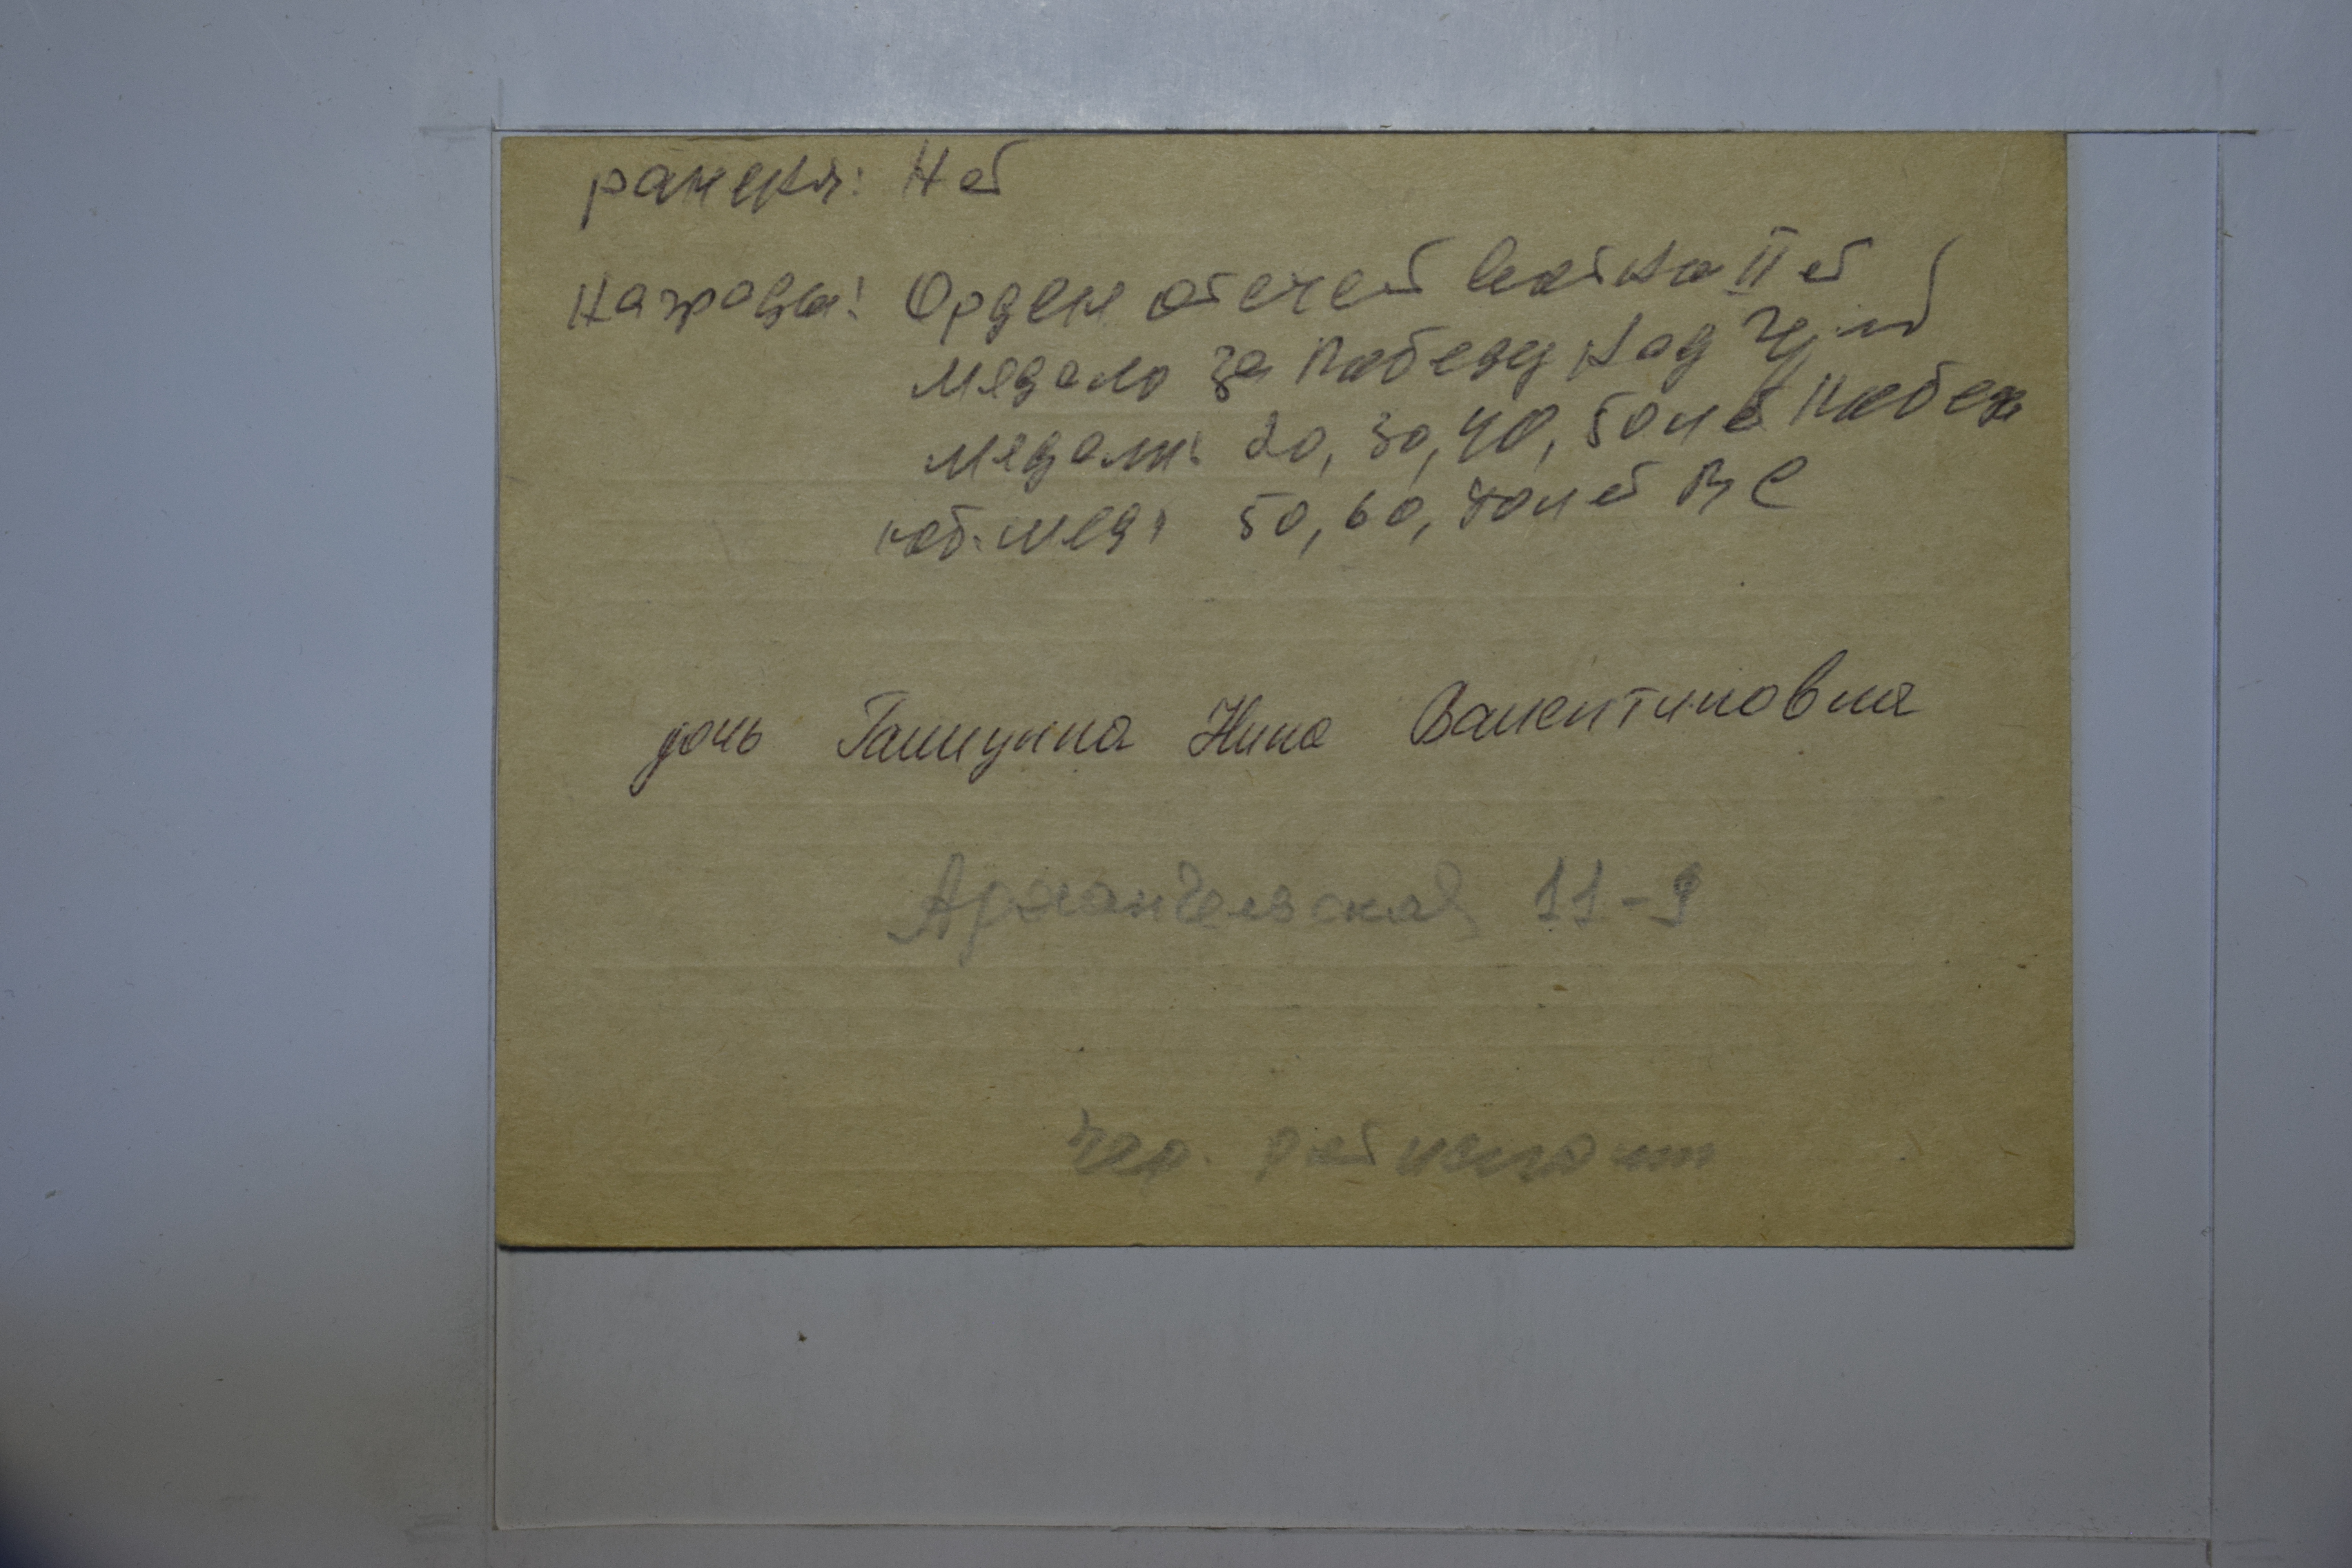 ранения: Нет
Награды: Орден отечест войны II ст
медаль за победу над Гер.
медали: 20, 30, 40, 50 лет Победы
юб. мед: 50, 60, 70 лет ВС
дочь Нина Валентиновна
Архангельская 11-9